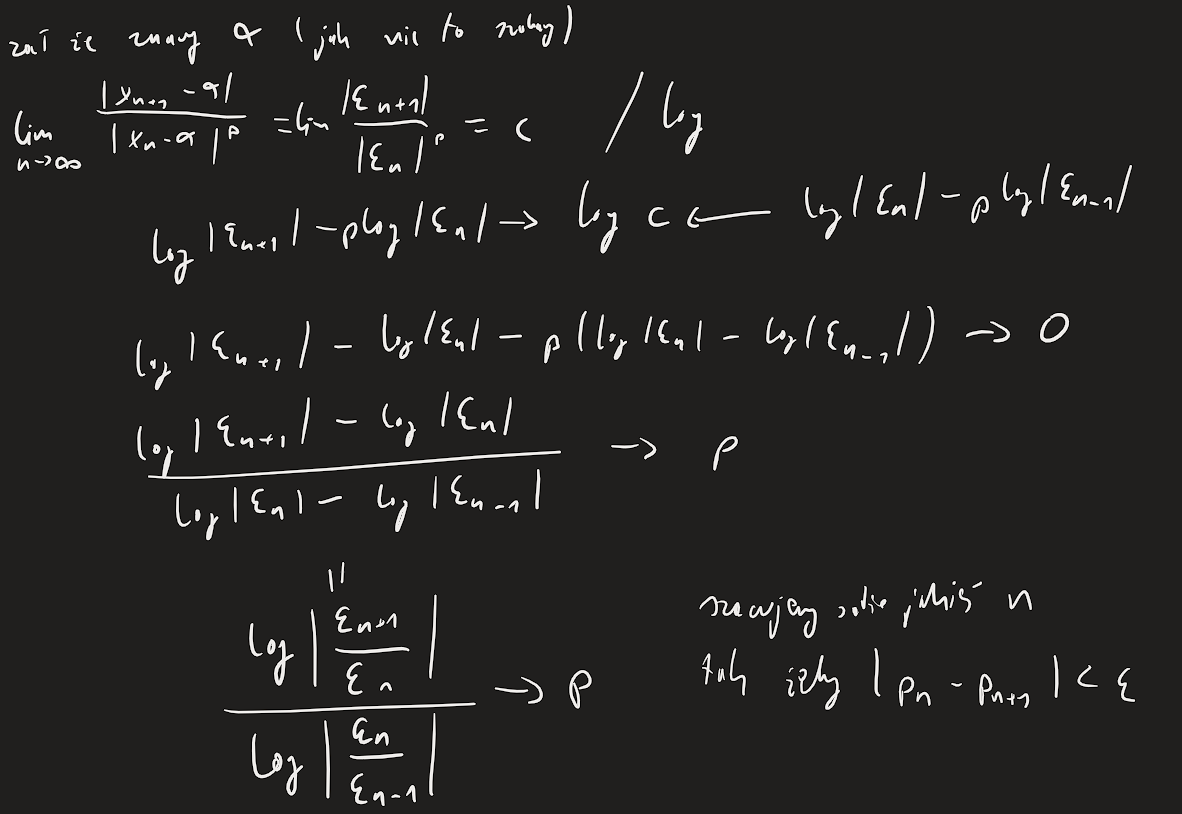 zał że znamy α (jak nie to robimy)
lim n→∞ |x_{n+1} - α| / |x_n - α|^p = lim |ε_{n+1}| / |ε_n|^p = c / log
log |ε_{n+1}| - p log |ε_n| → log c ← log |ε_n| - p log |ε_{n-1}|
log |ε_{n+1}| - log |ε_n| - p (log |ε_n| - log |ε_{n-1}|) → 0
log |ε_{n+1}| - log |ε_n|
log |ε_n| - log |ε_{n-1}| → p
||
log |ε_{n+1} / ε_n|
log |ε_n / ε_{n-1}| → p
sobie jakiś n
tak żeby |p_n - p_{n+1}| < ε